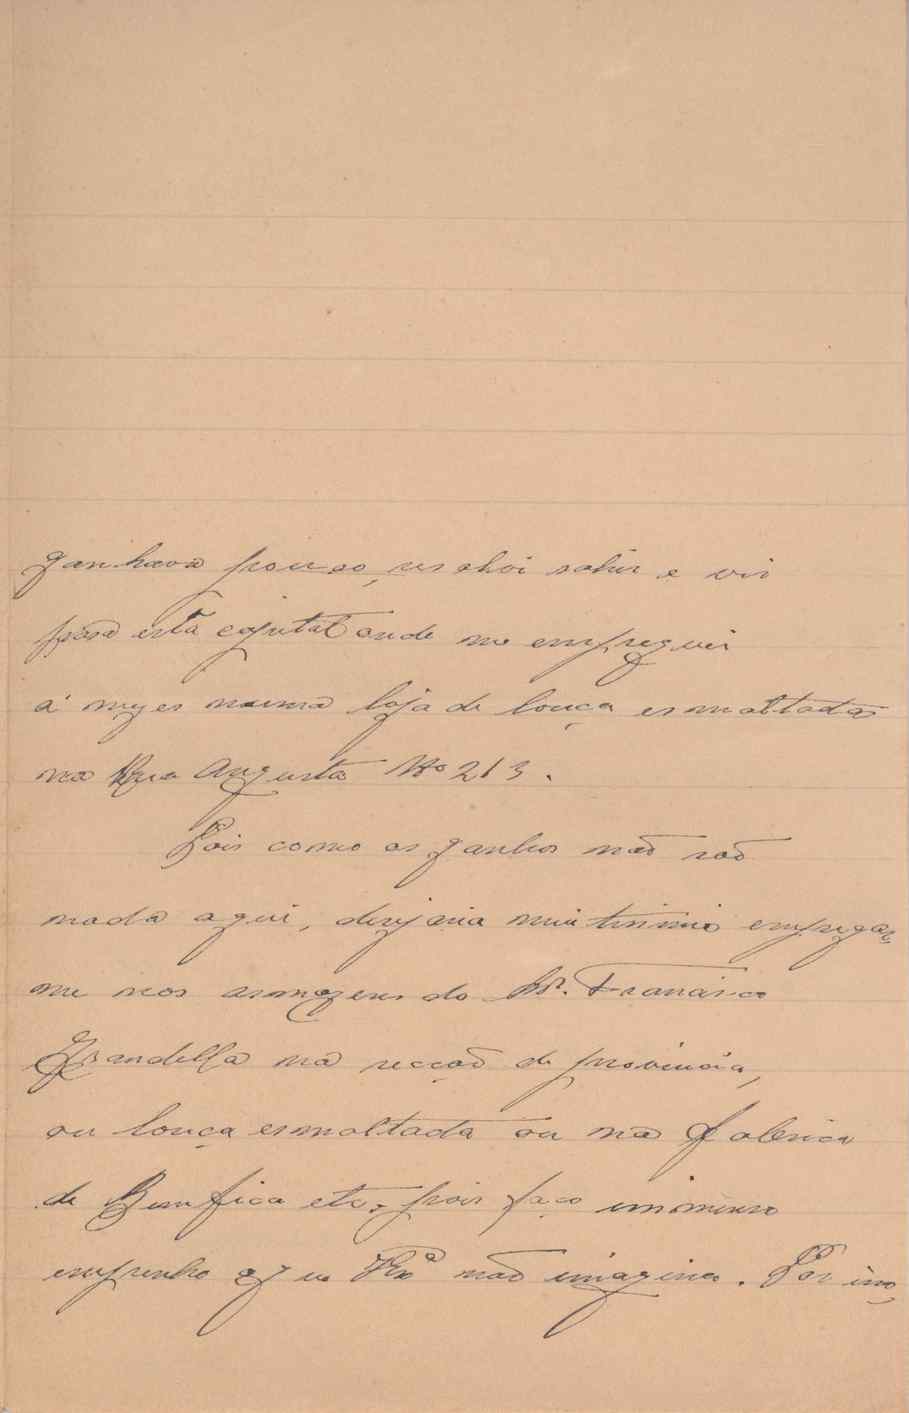 ganhava pouco, resolvi sahir e vir
para esta capital onde me empreguei
á mezes numa loja de louça esmaltada
na Rua Augusta Nº 213.
Pois como os ganhos não são
nada aqui, desejaria muitissimo empregar
me nos armazens do Sr. Francisco
Grandella na secção de provincia,
ou louça esmaltada ou na fabrica
de Bemfica etc, pois faço immenso
empenho que VExª não imagina. Por isso